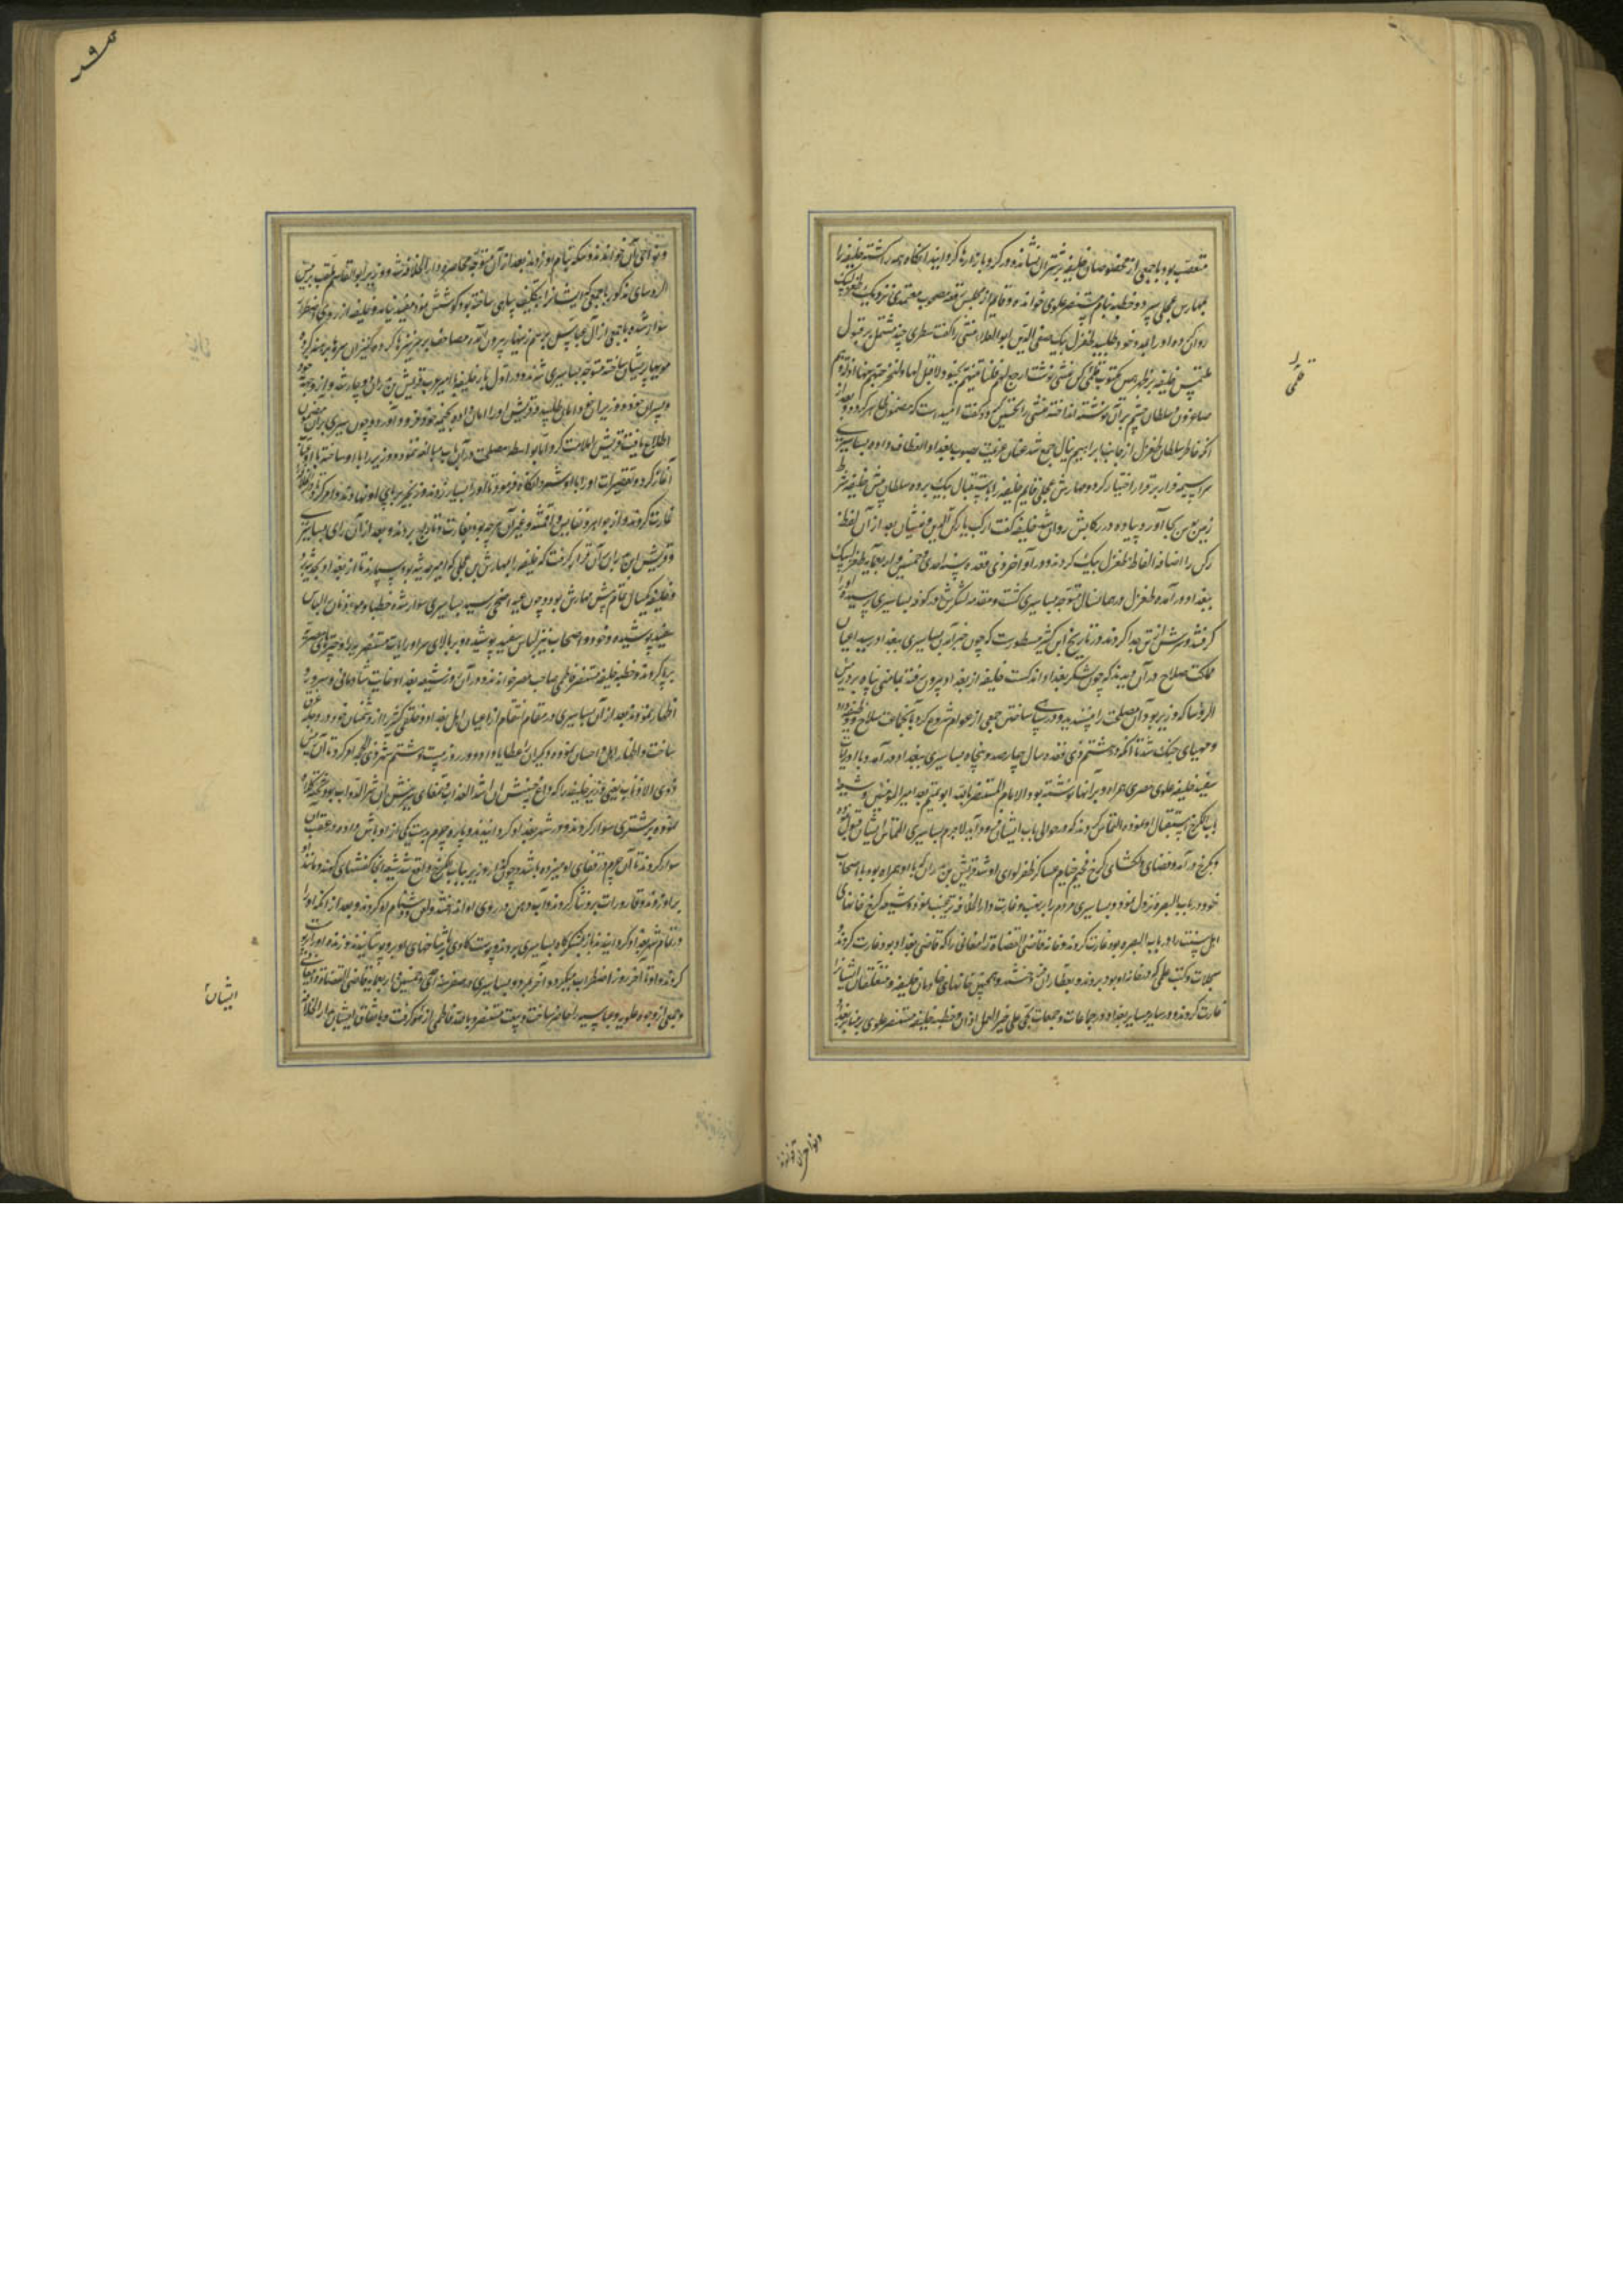 متعصب بود با جمعی از مخصوصان خلیفه بر شتران نشانده در کرد بازارها گردانیدند آنگاه همه را کشته خلیفه را
بمهارس عجلی سپرد و خطبه بنام مستنصر علوی خوانده و قایم از مجلس رقعه مصحوب معتمدی نزدیک طغرل بیک
روان کرده او را بمدد خود طلبید طغرل بیک صفی الدین ابوالعلاء منشی را گفت سطری چند مشتمل بر قبول
ملتمس خلیفه بر ظهر همین مکتوب قلمی کن منشی نوشت ارجع الیهم فلناتینهم بجنود لا قبل لهم بها ولنخرجنهم منها اذلة وهم
صاغرون سلطان چشم بر آن نوشته انداخته منشی را تحسین کرد و گفت امیدست که مضمون ظاهر کردد و بعد از
آنکه خاطر سلطان طغرل از جانب ابراهیم نیال جمع شد عنان عزیمت بصوب بغداد انعطاف داده بساسیری
سراسیمه فرار بر قرار اختیار کرد و مهارش عجلی قایم خلیفه را باستقبال بیک برده سلطان پیش خلیفه شرط
زمین بوس بجا آورد و پیاده در رکابش روان شد خلیفه گفت ارکب یا رکن الدین و منشیان بعد از آن لفظ
رکن را اضافه الفاظ طغرل بیک کردند و در آواخر ذی قعده سنه احدی و خمسین و اربعمایه طغرل بیک
ببغداد در آمده طغرل در همان سال متوجه بساسیری گشت و مقدمه لشکرش در کوفه بساسیری رسیده او را
گرفتند و سرش از تن جدا کردند و در تاریخ ابن کثیر مسطورست که چون خبر آمدن بساسیری ببغداد رسید اعیان
مملکت صلاح در آن دیدند که چون لشکر بغداد اندکست خلیفه از بغداد بیرون رفته بمامنی پناه برد رئیس
الرؤسا که وزیر بود آن مصلحت را نپسندید و در سپاهی ساختن جمعی از عوام شروع کرد با آنجماعت سلاح وظیفه داد
و مهیای جنک شد تا آنکه در هشتم ذی قعده سال چهار صد و پنجاه بساسیری ببغداد در آمد و با او رایات
سفید خلیفه علوی مصری همراه و بر آنها نوشته بود الامام المستنصر بالله ابو تمیم معد امیر المومنین و شیعه
باب الکرخ استقبال او نموده التماس کردند که در حوالی باب ایشان فرود آید لاجرم بساسیری التماس ایشان قبول نموده
و بکرخ در آمد و فضای دلکشای کرخ مخیم خیام عساکر ظفر لوای او شد و قریش بن بدران که با او همراه بود با اصحاب
خود در باب البصره نزول نمود و بساسیری مردم را بر نهب و غارت دار الخلافه ترغیب نمود و شیعه کرخ خانهای
اهل سنت را در باب البصره بود غارت کردند و خانه قاضی القضاة دامغانی را که قاضی بغداد بود غارت کردند و
سجلات و کتب علمی که در خانه او بود بردند و بعطاران فروختند و همچنین خانهای خادمان خلیفه و متعلقان ایشانرا
غارت کردند و در سایر مساجد بغداد در جماعات و جمعات بحی علی خیر العمل اذان و خطبه خلیفه مستنصر علوی بر منابر بغداد
را
قلمی
و نواحی آن
و نواحی آن خواندند و سکه بنام او زدند بعد از آن متوجه محاصره دار الخلافه شد و وزیر ابو القاسم ملقب برئیس
الرؤسای مذکور با جمعی که ایشانرا بتکلیف سپاهی ساخته بود کوشش نمود مفید نیامد و خلیفه از روی اضطرار
سوار شده با جمعی از آل عباس برسم زنهار بیرون آمد و مصاحف بر سر نیزها کرده و کنیزان سرها برهنه کرده
مویها پریشان ساخته متوجه بساسیری شدند و در اول بار خلیفه با امیر عرب قریش بن بدران دوچار شد و از وجه خود
و پسران خود و وزیر امان طلبید و قریش او را امان داده بخیمه خود فرود آورد و چون بساسیری بر آن مضمون
اطلاع یافت قریش را ملامت کرد اما بواسطه مصلحت در آن باب مبالغه ننمود و وزیر را با او ساخته با او عتاب
آغاز کرد و تقصیرات او را باو شمرد آنگاه فرمود تا او را بسیار زدند و زنجیر بر پای او نهادند و امر کرد تا دار الخلافه را
غارت کردند و از جواهر و نفایس و اقمشه و غیر آن هر چه بود بغارت و تاراج بردند و بعد از آن رای بساسیری
و قریش بن بدران بر آن قرار گرفت که خلیفه را بمهارش بن عجلی که امیر حدیثه بود سپارند تا از بغداد بحدیثه برد
و خلیفه یکسال تمام پیش مهارش بود و چون عید اضحی رسید بساسیری سوار شده خطبا و موذنان را لباس
سفید پوشیده و خود و اصحاب نیز لباس سفید پوشیده و بر بالای سر او رایات مستنصریه و چترهای مصریه
برپا کردند و خطبه خلیفه مستنصر فاطمی صاحب مصر خواندند و در آن روز شیعه بغداد غایت شادمانی و سرور
اظهار نمودند بعد از آن بساسیری در مقام انتقام از اعیان اهل بغداد و خلقی کثیر را از دشمنان خود در دجله غرق
ساخت و اظهار عدل و احسان نموده دیگران را عطایا داد و در روز بیست و هشتم شهر ذی الحجه امر کرد تا آن رئیس
ذوی الاذناب یعنی وزیر خلیفه را
نموده بر شتری سوار کردند و در شهر بغداد گردانیدند و پاره چرم بدست یکی از اوباش داده در عقب آن
سوار کردند تا آن چرم در قفای او میزده باشد و چون گذار وزیر بباب کرخ واقع شد شیعه آنجا کفشهای کهنه و مانند آن
بر او زدند و قاذورات بر او نثار کردند و آب دهن در روی او انداختند و لعن و دشنام او کردند و بعد از آنکه او را
در تمام شهر بغداد گردانیدند باز بلشکرگاه بساسیری بردند و پوست گاوی با شاخهای او برو پوشانیدند و زنده او را بر دار
کردند و او تا آخر روز اضطراب میکرد و آخر مرد و بساسیری در صفر سنه احدی و خمسین و اربعمایه قاضی القضاة دامغانی
و جمعی از وجوه علویه و عباسیه را حاضر ساخت و بیعت مستنصر بالله فاطمی از همه گرفت و باتفاق ایشان بدار الخلافه
ایشان